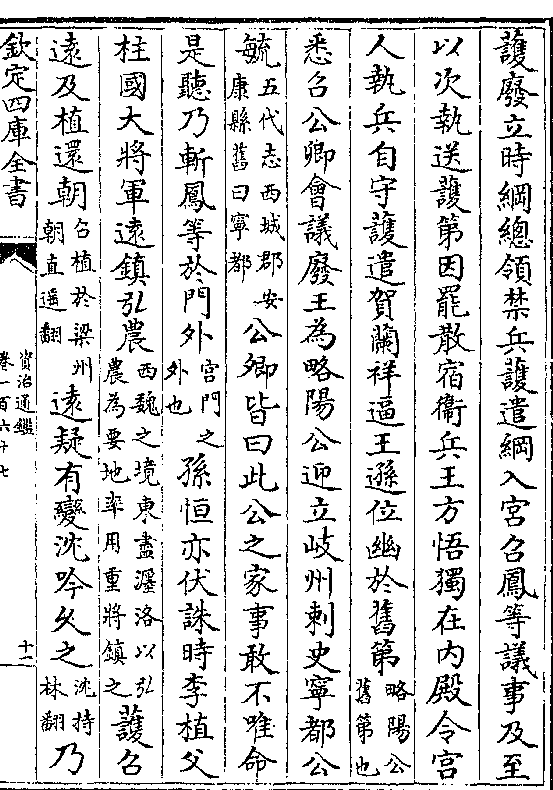 護廢立時綱總領禁兵護遣綱入宫召鳳等議事及至
以次執送護第因罷散宿衞兵王方悟獨在内殿令宫
人執兵自守護遣賀蘭祥逼王遜位幽於舊第略陽公舊第也
悉召公卿會議廢王為略陽公迎立岐州刺史寧都公
毓五代志西城郡安康縣舊曰寧都公卿皆曰此公之家事敢不唯命
是聽乃斬鳳等於門外宫門之外也孫恒亦伏誅時李植父
柱國大將軍遠鎮弘農西魏之境東盡瀍洛以弘農為要地率用重將鎮之護召
遠及植還朝召植於梁州朝直遥翻遠疑有變沈吟久之沈持林翻乃
欽定四庫全書
資治通鑑
卷一百六十七
十一